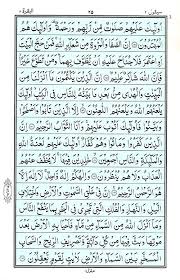 سيقول ٢
٢٥
البقرة ٢
اُولٰٓئِكَ عَلَيْهِمْ صَلَوٰتٌ مِّنْ رَّبِّهِمْ وَرَحْمَةٌ وَاُولٰٓئِكَ هُمُ
الْمُهْتَدُوْنَ اِنَّ الصَّفَا وَالْمَرْوَةَ مِنْ شَعَآئِرِ اللّٰهِ فَمَنْ حَجَّ
الْبَيْتَ اَوِ اعْتَمَرَ فَلَا جُنَاحَ عَلَيْهِ اَنْ يَّطَّوَّفَ بِهِمَا وَمَنْ تَطَوَّعَ
خَيْرًا فَاِنَّ اللّٰهَ شَاكِرٌ عَلِيْمٌ اِنَّ الَّذِيْنَ يَكْتُمُوْنَ مَآ اَنْزَلْنَا مِنَ
الْبَيِّنٰتِ وَالْهُدٰى مِنْۢ بَعْدِ مَا بَيَّنّٰهُ لِلنَّاسِ فِى الْكِتٰبِ اُولٰٓئِكَ
يَلْعَنُهُمُ اللّٰهُ وَيَلْعَنُهُمُ اللّٰعِنُوْنَ اِلَّا الَّذِيْنَ تَابُوْا وَاَصْلَحُوْا وَبَيَّنُوْا
فَاُولٰٓئِكَ اَتُوْبُ عَلَيْهِمْ وَاَنَا التَّوَّابُ الرَّحِيْمُ اِنَّ الَّذِيْنَ كَفَرُوْا
وَمَاتُوْا وَهُمْ كُفَّارٌ اُولٰٓئِكَ عَلَيْهِمْ لَعْنَةُ اللّٰهِ
وَالْمَلٰٓئِكَةِ وَالنَّاسِ اَجْمَعِيْنَ خٰلِدِيْنَ فِيْهَا لَا يُخَفَّفُ
عَنْهُمُ الْعَذَابُ وَلَا هُمْ يُنْظَرُوْنَ وَاِلٰهُكُمْ اِلٰهٌ وَّاحِدٌ لَآ اِلٰهَ اِلَّا
هُوَ الرَّحْمٰنُ الرَّحِيْمُ اِنَّ فِيْ خَلْقِ السَّمٰوٰتِ وَالْاَرْضِ وَاخْتِلَافِ
الَّيْلِ وَالنَّهَارِ وَالْفُلْكِ الَّتِيْ تَجْرِيْ فِى الْبَحْرِ بِمَا يَنْفَعُ النَّاسَ
وَمَآ اَنْزَلَ اللّٰهُ مِنَ السَّمَآءِ مِنْ مَّآءٍ فَاَحْيَا بِهِ الْاَرْضَ بَعْدَ
مَوْتِهَا وَبَثَّ فِيْهَا مِنْ كُلِّ دَآبَّةٍ وَّتَصْرِيْفِ الرِّيٰحِ وَالسَّحَابِ
الْمُسَخَّرِ بَيْنَ السَّمَآءِ وَالْاَرْضِ لَاٰيٰتٍ لِّقَوْمٍ يَّعْقِلُوْنَ